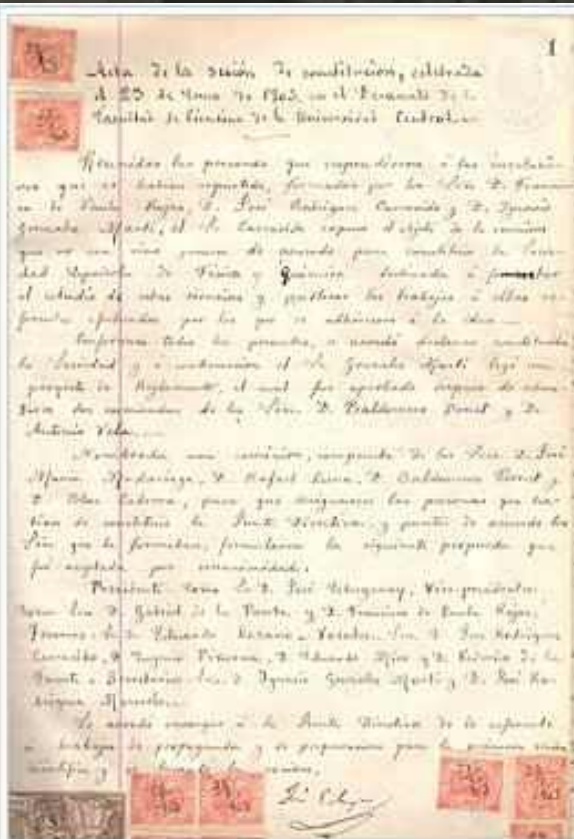 1
Acta de la sesión de constitución, celebrada
el 23 de Enero de 1903, en el Decanato de la
Facultad de Ciencias de la Universidad Central.
Reunidas las personas que respondieron á las
que se habían repartido, formadas por los Sres. D. Francis-
co de Paula Rojas, D. José Rodríguez Carracido y D. Ignacio
González Martí, el Sr. Carracido expuso el objeto de la reunión
que no era otro ponerse de acuerdo para constituir la Socie-
dad Española de Física y Química destinada á fomentar
el estudio de estas ciencias y publicar los trabajos á ellas re-
ferentes por los que se adhiriesen á la idea.
Conformes todos los presentes, se acordó declarar constituida
la Sociedad y á continuación el Sr. González Martí leyó un
proyecto de Reglamento, el cual fué aprobado después de
dos enmiendas de los Sres. D. Baldomero Bonet y D.
Antonio Vela.
Nombrada una comisión, compuesta de los Sres. D. José
María Madariaga, D. Rafael Luna, D. Baldomero Bonet y
D. Blas Cabrera, para que designasen las personas que ha-
bían de constituir la Junta Directiva, y puestos de acuerdo los
Sres. que la formaban, formularon la siguiente propuesta que
fué aceptada por unanimidad.
Presidente Excmo. Sr. D. José Echegaray, Vice-presidentes
Excmo. Sres. D. Gabriel de la Puerta y D. Francisco de Paula Rojas,
Tesorero Sr. D. Eduardo Vocales Sres. D. José Rodríguez
Carracido, D. Eugenio Piñerua, D. Eduardo Mier y D. Federico de la
Fuente Secretarios Sres. D. Ignacio González Martí y D. José Ro-
dríguez Mourelo.
Se acordó encargar á la Junta Directiva de lo referente
á trabajos de propaganda y de preparación para la primera sesión
científica y se levantó la sesión.